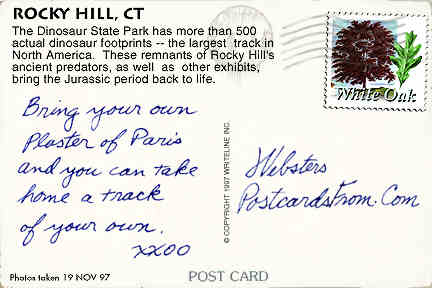 ROCKY HILL, CT
The Dinosaur State Park has more than 500
actual dinosaur footprints -- the largest track in
North America. These remnants of Rocky Hill's
ancient predators, as well as other exhibits,
bring the Jurassic period back to life.
Bring your own
Plaster of Paris
and you can take
home a track
of your own.
XXOO
Photos taken 19 NOV 97
© COPYRIGHT 1997 WRITELINE INC.
White Oak
Websters
PostcardsFrom.Com
POST CARD